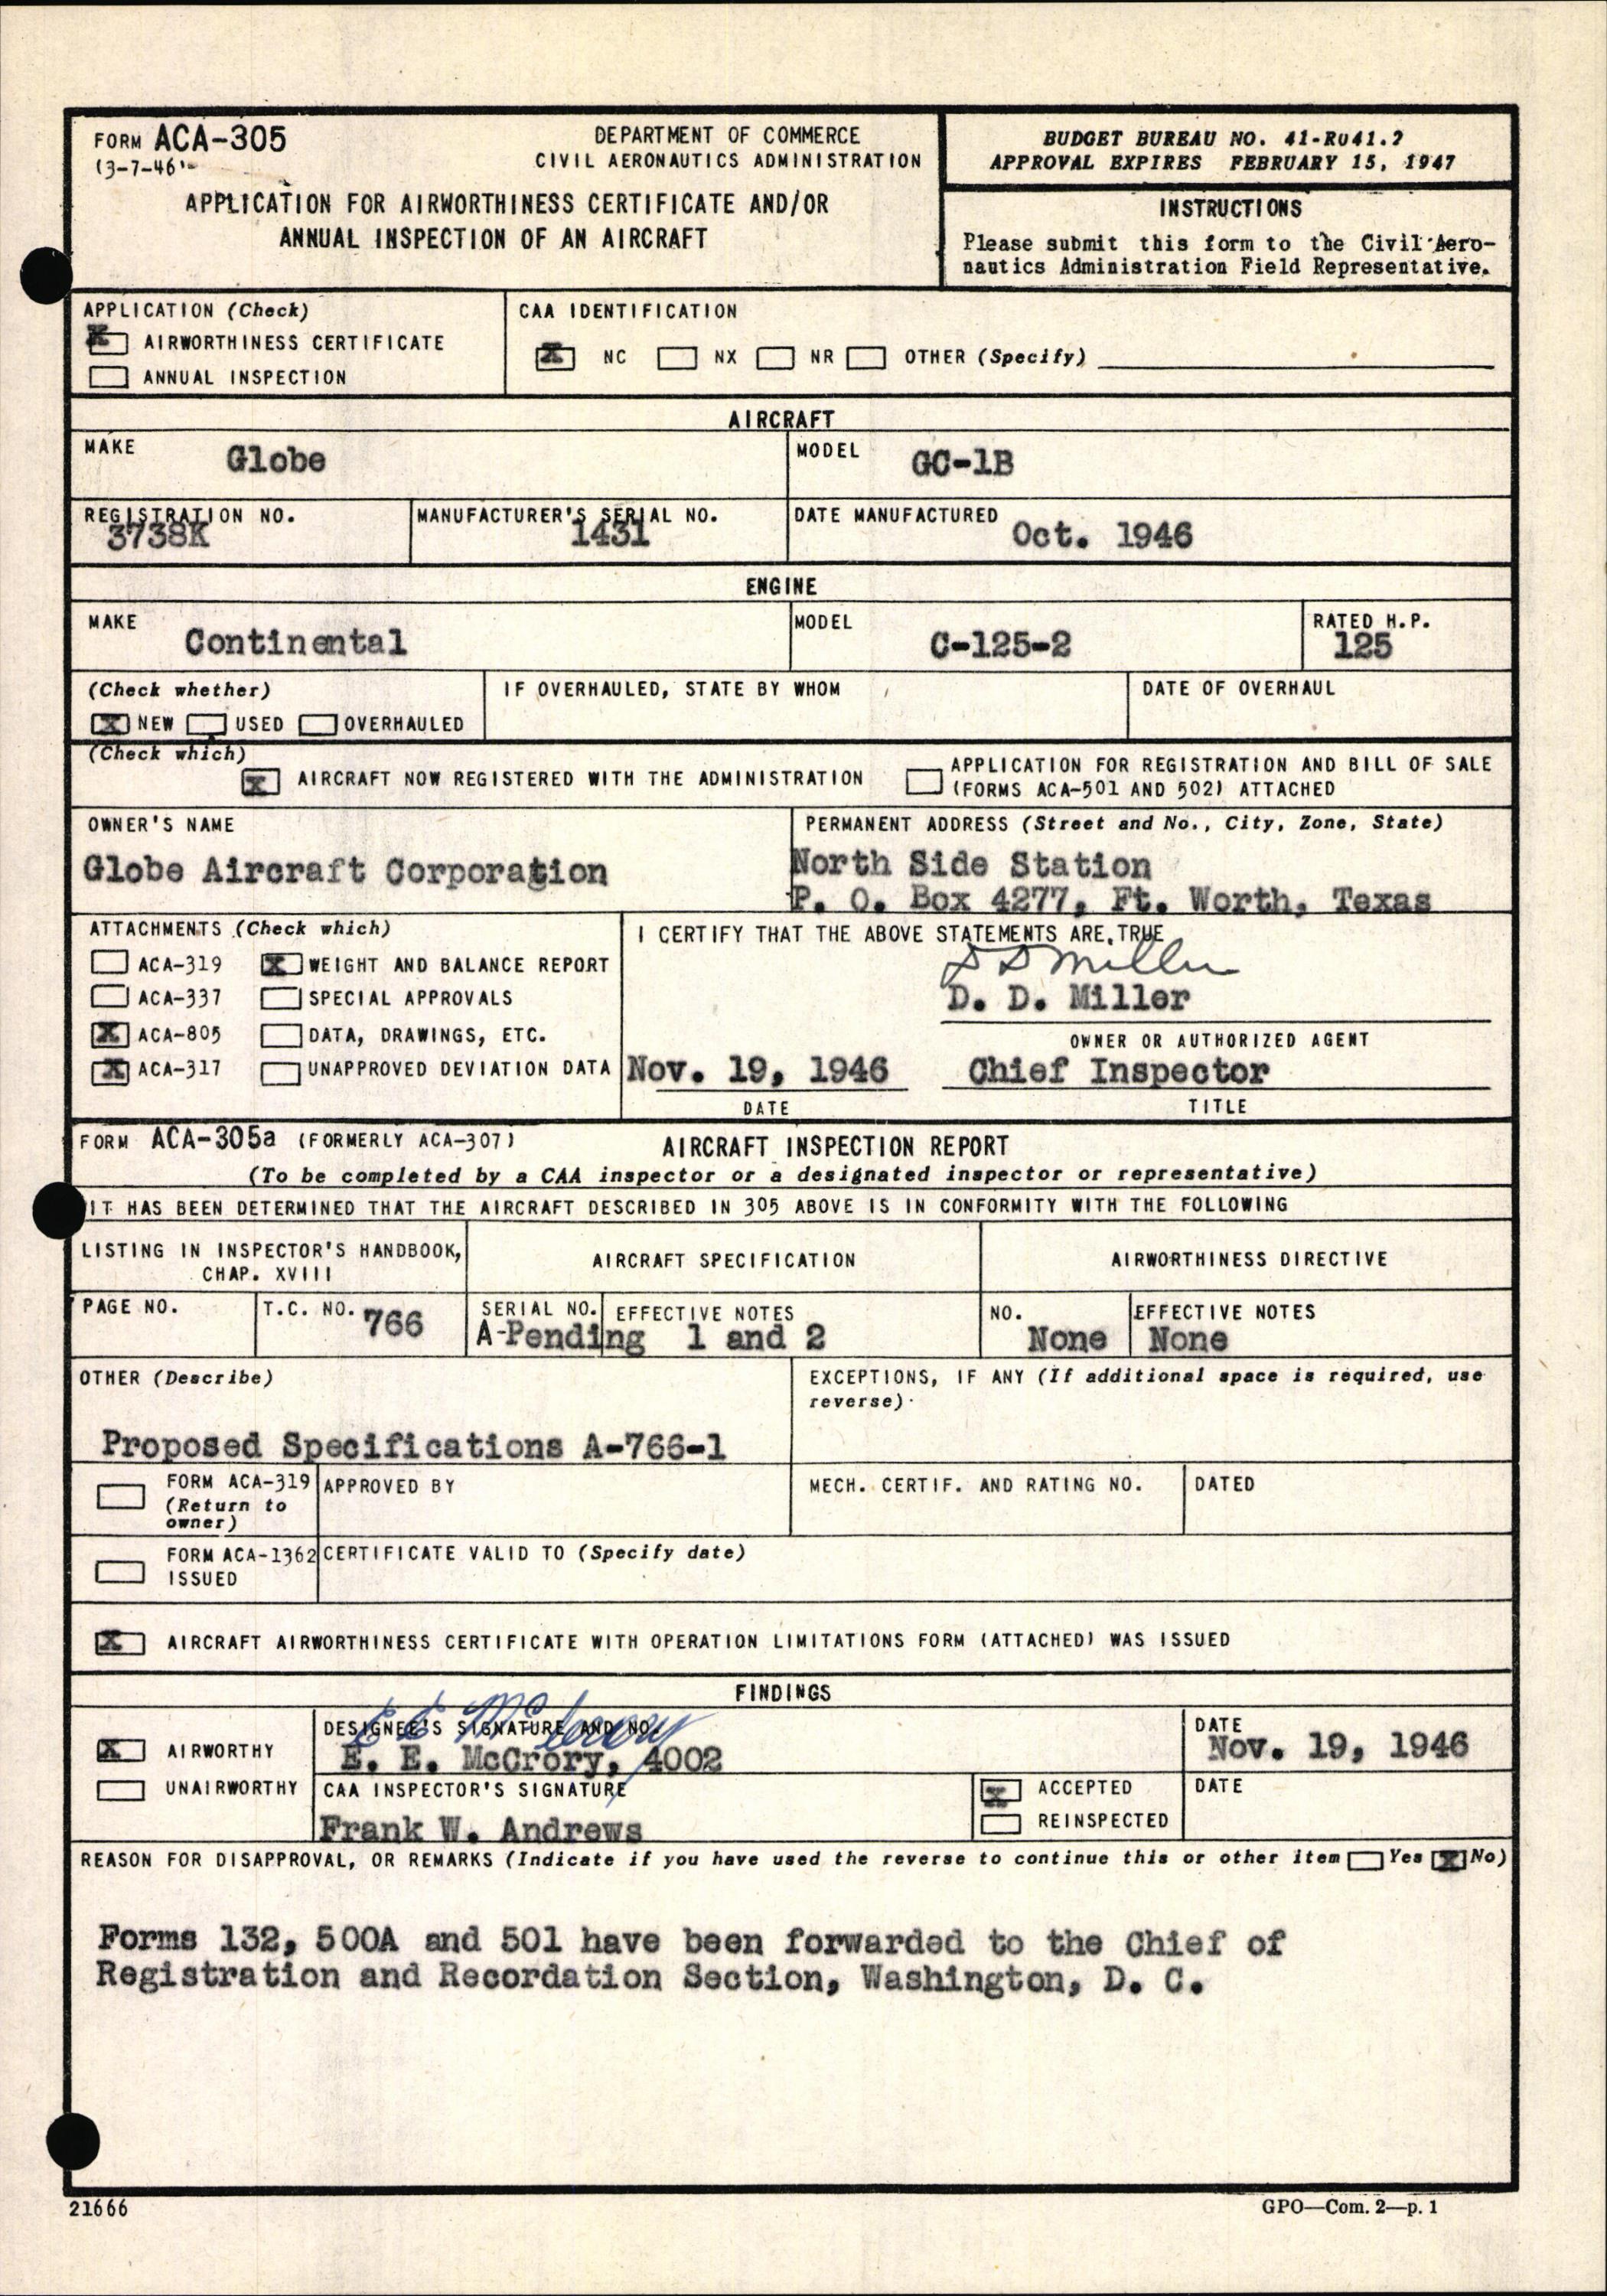 FORM ACA-305
(3-7-46)
DEPARTMENT OF COMMERCE
CIVIL AERONAUTICS ADMINISTRATION
APPLICATION FOR AIRWORTHINESS CERTIFICATE AND/OR
ANNUAL INSPECTION OF AN AIRCRAFT
BUDGET BUREAU NO. 41-R041.2
APPROVAL EXPIRES FEBRUARY 15, 1947
INSTRUCTIONS
Please submit this form to the Civil Aero-
nautics Administration Field Representative.
APPLICATION (Check)
X AIRWORTHINESS CERTIFICATE
ANNUAL INSPECTION
CAA IDENTIFICATION
X NC NX NR OTHER (Specify)
AIRCRAFT
MAKE Globe
MODEL GC-1B
REGISTRATION NO. 3738K
MANUFACTURER'S SERIAL NO. 1431
DATE MANUFACTURED Oct. 1946
ENGINE
MAKE Continental
MODEL C-125-2
RATED H.P. 125
(Check whether)
X NEW USED OVERHAULED
IF OVERHAULED, STATE BY WHOM
DATE OF OVERHAUL
(Check which)
X AIRCRAFT NOW REGISTERED WITH THE ADMINISTRATION
APPLICATION FOR REGISTRATION AND BILL OF SALE
(FORMS ACA-501 AND 502) ATTACHED
OWNER'S NAME
Globe Aircraft Corporation
PERMANENT ADDRESS (Street and No., City, Zone, State)
North Side Station
P. O. Box 4277, Ft. Worth, Texas
ATTACHMENTS (Check which)
ACA-319 X WEIGHT AND BALANCE REPORT
ACA-337 SPECIAL APPROVALS
X ACA-805 DATA, DRAWINGS, ETC.
X ACA-317 UNAPPROVED DEVIATION DATA
I CERTIFY THAT THE ABOVE STATEMENTS ARE TRUE
D D Miller
D. D. Miller
OWNER OR AUTHORIZED AGENT
Nov. 19, 1946 Chief Inspector
DATE TITLE
FORM ACA-305a (FORMERLY ACA-307) AIRCRAFT INSPECTION REPORT
(To be completed by a CAA inspector or a designated inspector or representative)
IT HAS BEEN DETERMINED THAT THE AIRCRAFT DESCRIBED IN 305 ABOVE IS IN CONFORMITY WITH THE FOLLOWING
LISTING IN INSPECTOR'S HANDBOOK,
CHAP. XVIII
AIRCRAFT SPECIFICATION
AIRWORTHINESS DIRECTIVE
PAGE NO.
T.C. NO. 766
SERIAL NO. EFFECTIVE NOTES
A-Pending 1 and 2
NO. EFFECTIVE NOTES
None None
OTHER (Describe)
Proposed Specifications A-766-1
EXCEPTIONS, IF ANY (If additional space is required, use
reverse)
FORM ACA-319
(Return to
owner)
APPROVED BY
MECH. CERTIF. AND RATING NO.
DATED
FORM ACA-1362
ISSUED
CERTIFICATE VALID TO (Specify date)
X AIRCRAFT AIRWORTHINESS CERTIFICATE WITH OPERATION LIMITATIONS FORM (ATTACHED) WAS ISSUED
FINDINGS
X AIRWORTHY
UNAIRWORTHY
DESIGNEE'S SIGNATURE AND NO.
E E McCrory
E. E. McCrory, 4002
DATE
Nov. 19, 1946
CAA INSPECTOR'S SIGNATURE
Frank W. Andrews
X ACCEPTED
REINSPECTED
DATE
REASON FOR DISAPPROVAL, OR REMARKS (Indicate if you have used the reverse to continue this or other item Yes X No)
Forms 132, 500A and 501 have been forwarded to the Chief of
Registration and Recordation Section, Washington, D. C.
21666
GPO—Com. 2—p. 1